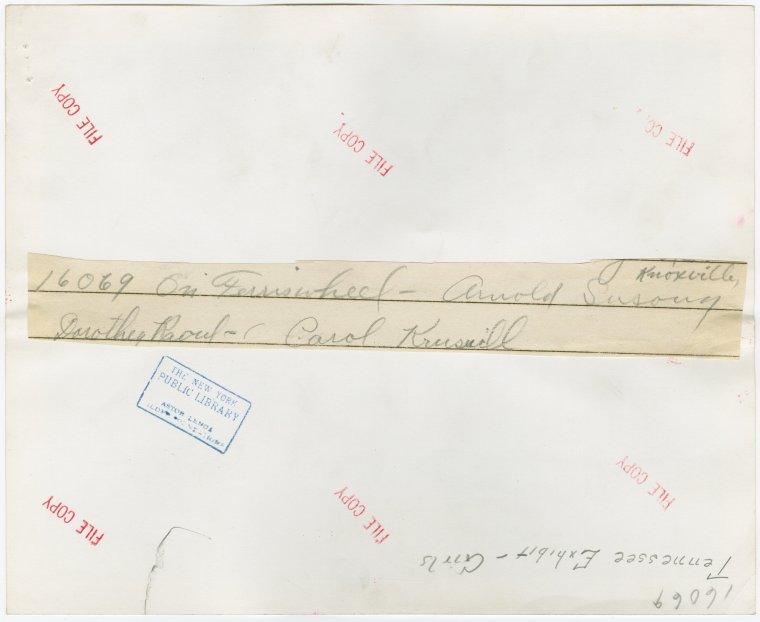 FILE COPY
FILE COPY
FILE CO
Knoxville,
16069 On Ferriswheel - Arnold Susong
Dorothey Raoul - Carol
THE NEW YORK
PUBLIC LIBRARY
ASTOR LENOX
FILE COPY
FILE COPY
FILE COPY
Tennessee Exhibit - Girls
16069